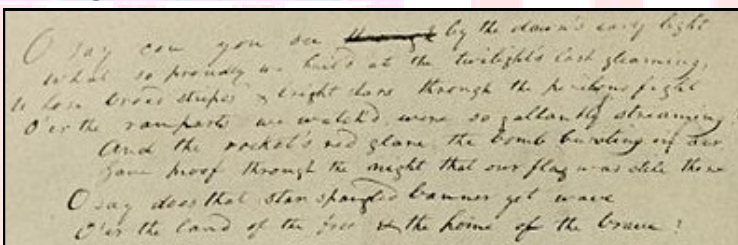 O say can you see ~~through~~ by the dawn's early light
What so proudly we hail'd at the twilight's last gleaming,
Whose broad stripes & bright stars through the perilous fight
O'er the ramparts we watch'd, were so gallantly streaming?
And the rocket's red glare, the bomb bursting in air
Gave proof through the night that our flag was still there
O say does that star spangled banner yet wave
O'er the land of the free & the home of the brave?